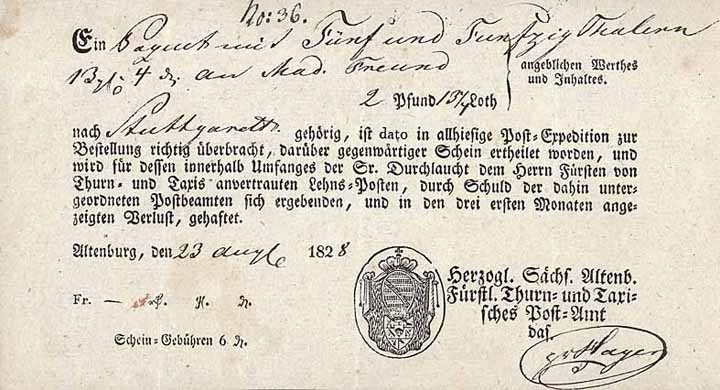 No: 36.
Ein Paquet mit Fünf und Funfzig Thalern
13 4 an Mad. Freund
angeblichen Werthes
und Inhaltes.
2 Pfund Loth
nach Stuttgardt gehörig, ist dato in allhiesige Post-Expedition zur
Bestellung richtig überbracht, darüber gegenwärtiger Schein ertheilet worden, und
wird für dessen innerhalb Umfanges der Sr. Durchlaucht dem Herrn Fürsten von
Thurn- und Taxis anvertrauten Lehns-Posten, durch Schuld der dahin unter-
geordneten Postbeamten sich ergebenden, und in den drei ersten Monaten ange-
zeigten Verlust, gehaftet.
Altenburg, den 23 1828
Herzogl. Sächs. Altenb.
Fürstl. Thurn- und Taxi-
sches Post-Amt
das.
Fr. —
Schein-Gebühren 6